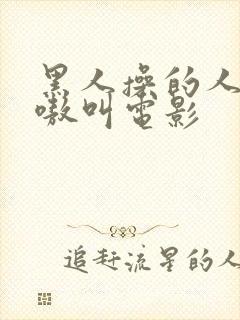 黑人操的人
嗷叫电影
追赶流星的人